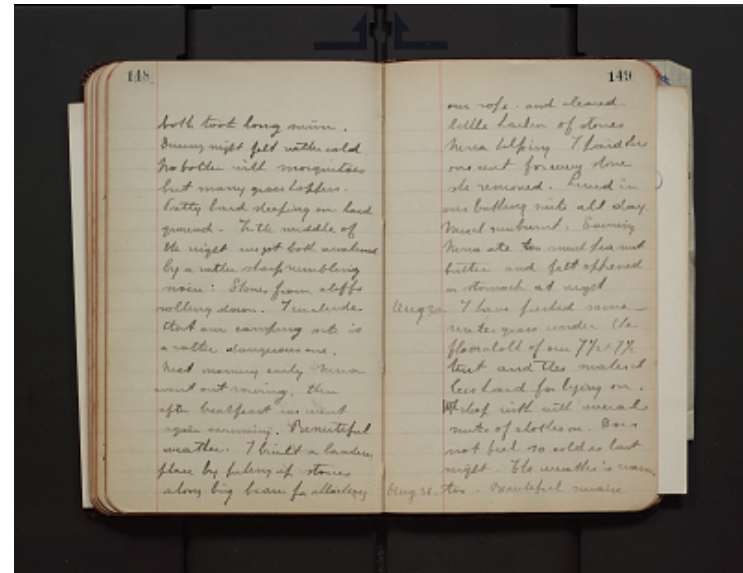 148
both took long swim.
During night felt rather cold
No bother with mosquitoes
but many grass hoppers.
Pretty hard sleeping on hard
ground. In the middle of
the night we got both awakened
by a rather sharp rumbling
noise: Stones from cliffs
rolling down. I conclude
that our camping site is
a rather dangerous one.
Next morning early
went out rowing, then
after breakfast we went
again swimming. Beautiful
weather. I built a landing
place by piling up stones
along big beam for attaching
149
our rope and cleared
little harbor of stones
helping. I paid her
one cent for every stone
she removed. Lived in
our bathing suits all day.
sunburnt. Evening
ate too much peanut
butter and felt
in stomach at night
Aug 30. I have pushed some
grass under the
floor of our 7½ + 7½
tent and this makes it
less hard for lying on.
sleep with several
suits of clothes on. Does
not feel so cold as last
night. The weather is warm
Aug 31. too. Beautiful sunrise